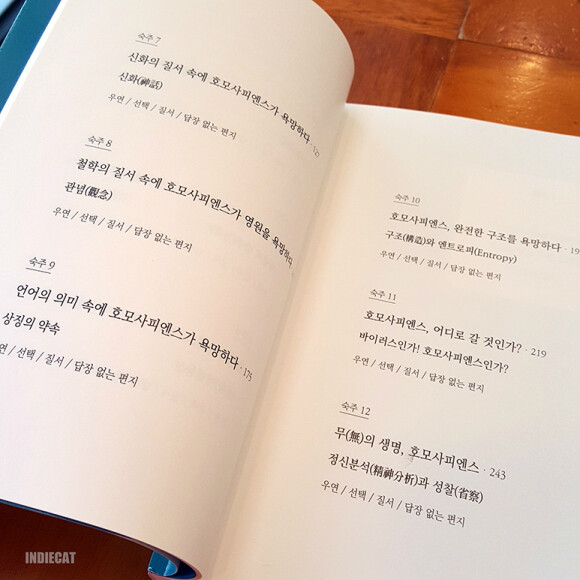 숙주 7
신화의 질서 속에 호모사피엔스가 욕망하다 · 127
신화(神話)
우연 / 선택 / 질서 / 답장 없는 편지
숙주 8
철학의 질서 속에 호모사피엔스가 영원을 욕망하다 ·
관념(觀念)
우연 / 선택 / 질서 / 답장 없는 편지
숙주 9
언어의 의미 속에 호모사피엔스가 욕망하다 · 175
상징의 약속
연 / 선택 / 질서 / 답장 없는 편지
숙주 10
호모사피엔스, 완전한 구조를 욕망하다 · 19
구조(構造)와 엔트로피(Entropy)
우연 / 선택 / 질서 / 답장 없는 편지
숙주 11
호모사피엔스, 어디로 갈 것인가? · 219
바이러스인가! 호모사피엔스인가?
우연 / 선택 / 질서 / 답장 없는 편지
숙주 12
무(無)의 생명, 호모사피엔스 · 243
정신분석(精神分析)과 성찰(省察)
우연 / 선택 / 질서 / 답장 없는 편지
INDIECAT